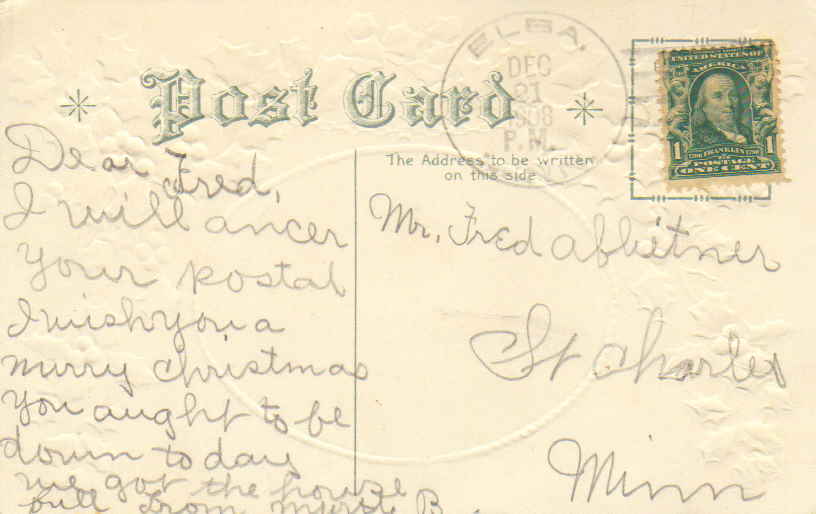 Post Card
The Address to be written
on this side
ELBA,
DEC
21
1908
P.M.
MINN.
UNITED STATES OF
AMERICA
1706 FRANKLIN 1790
1 POSTAGE 1
ONE CENT
Dear Fred,
I will ancer
your postal
I wish you a
murry christmas
you aught to be
down to day
we got the house
full from B.
Mr. Fred
St Charles
Minn